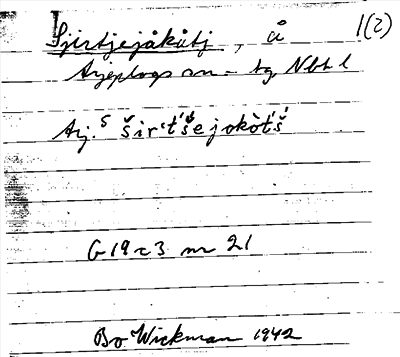 Sjirtjejåkåtj, å 1(2)
Arjeplogs sn - tg Nbt l
Arj. S šir't'šejokòt'š
G 19 c 3 nr 21
Bo Wickman 1942